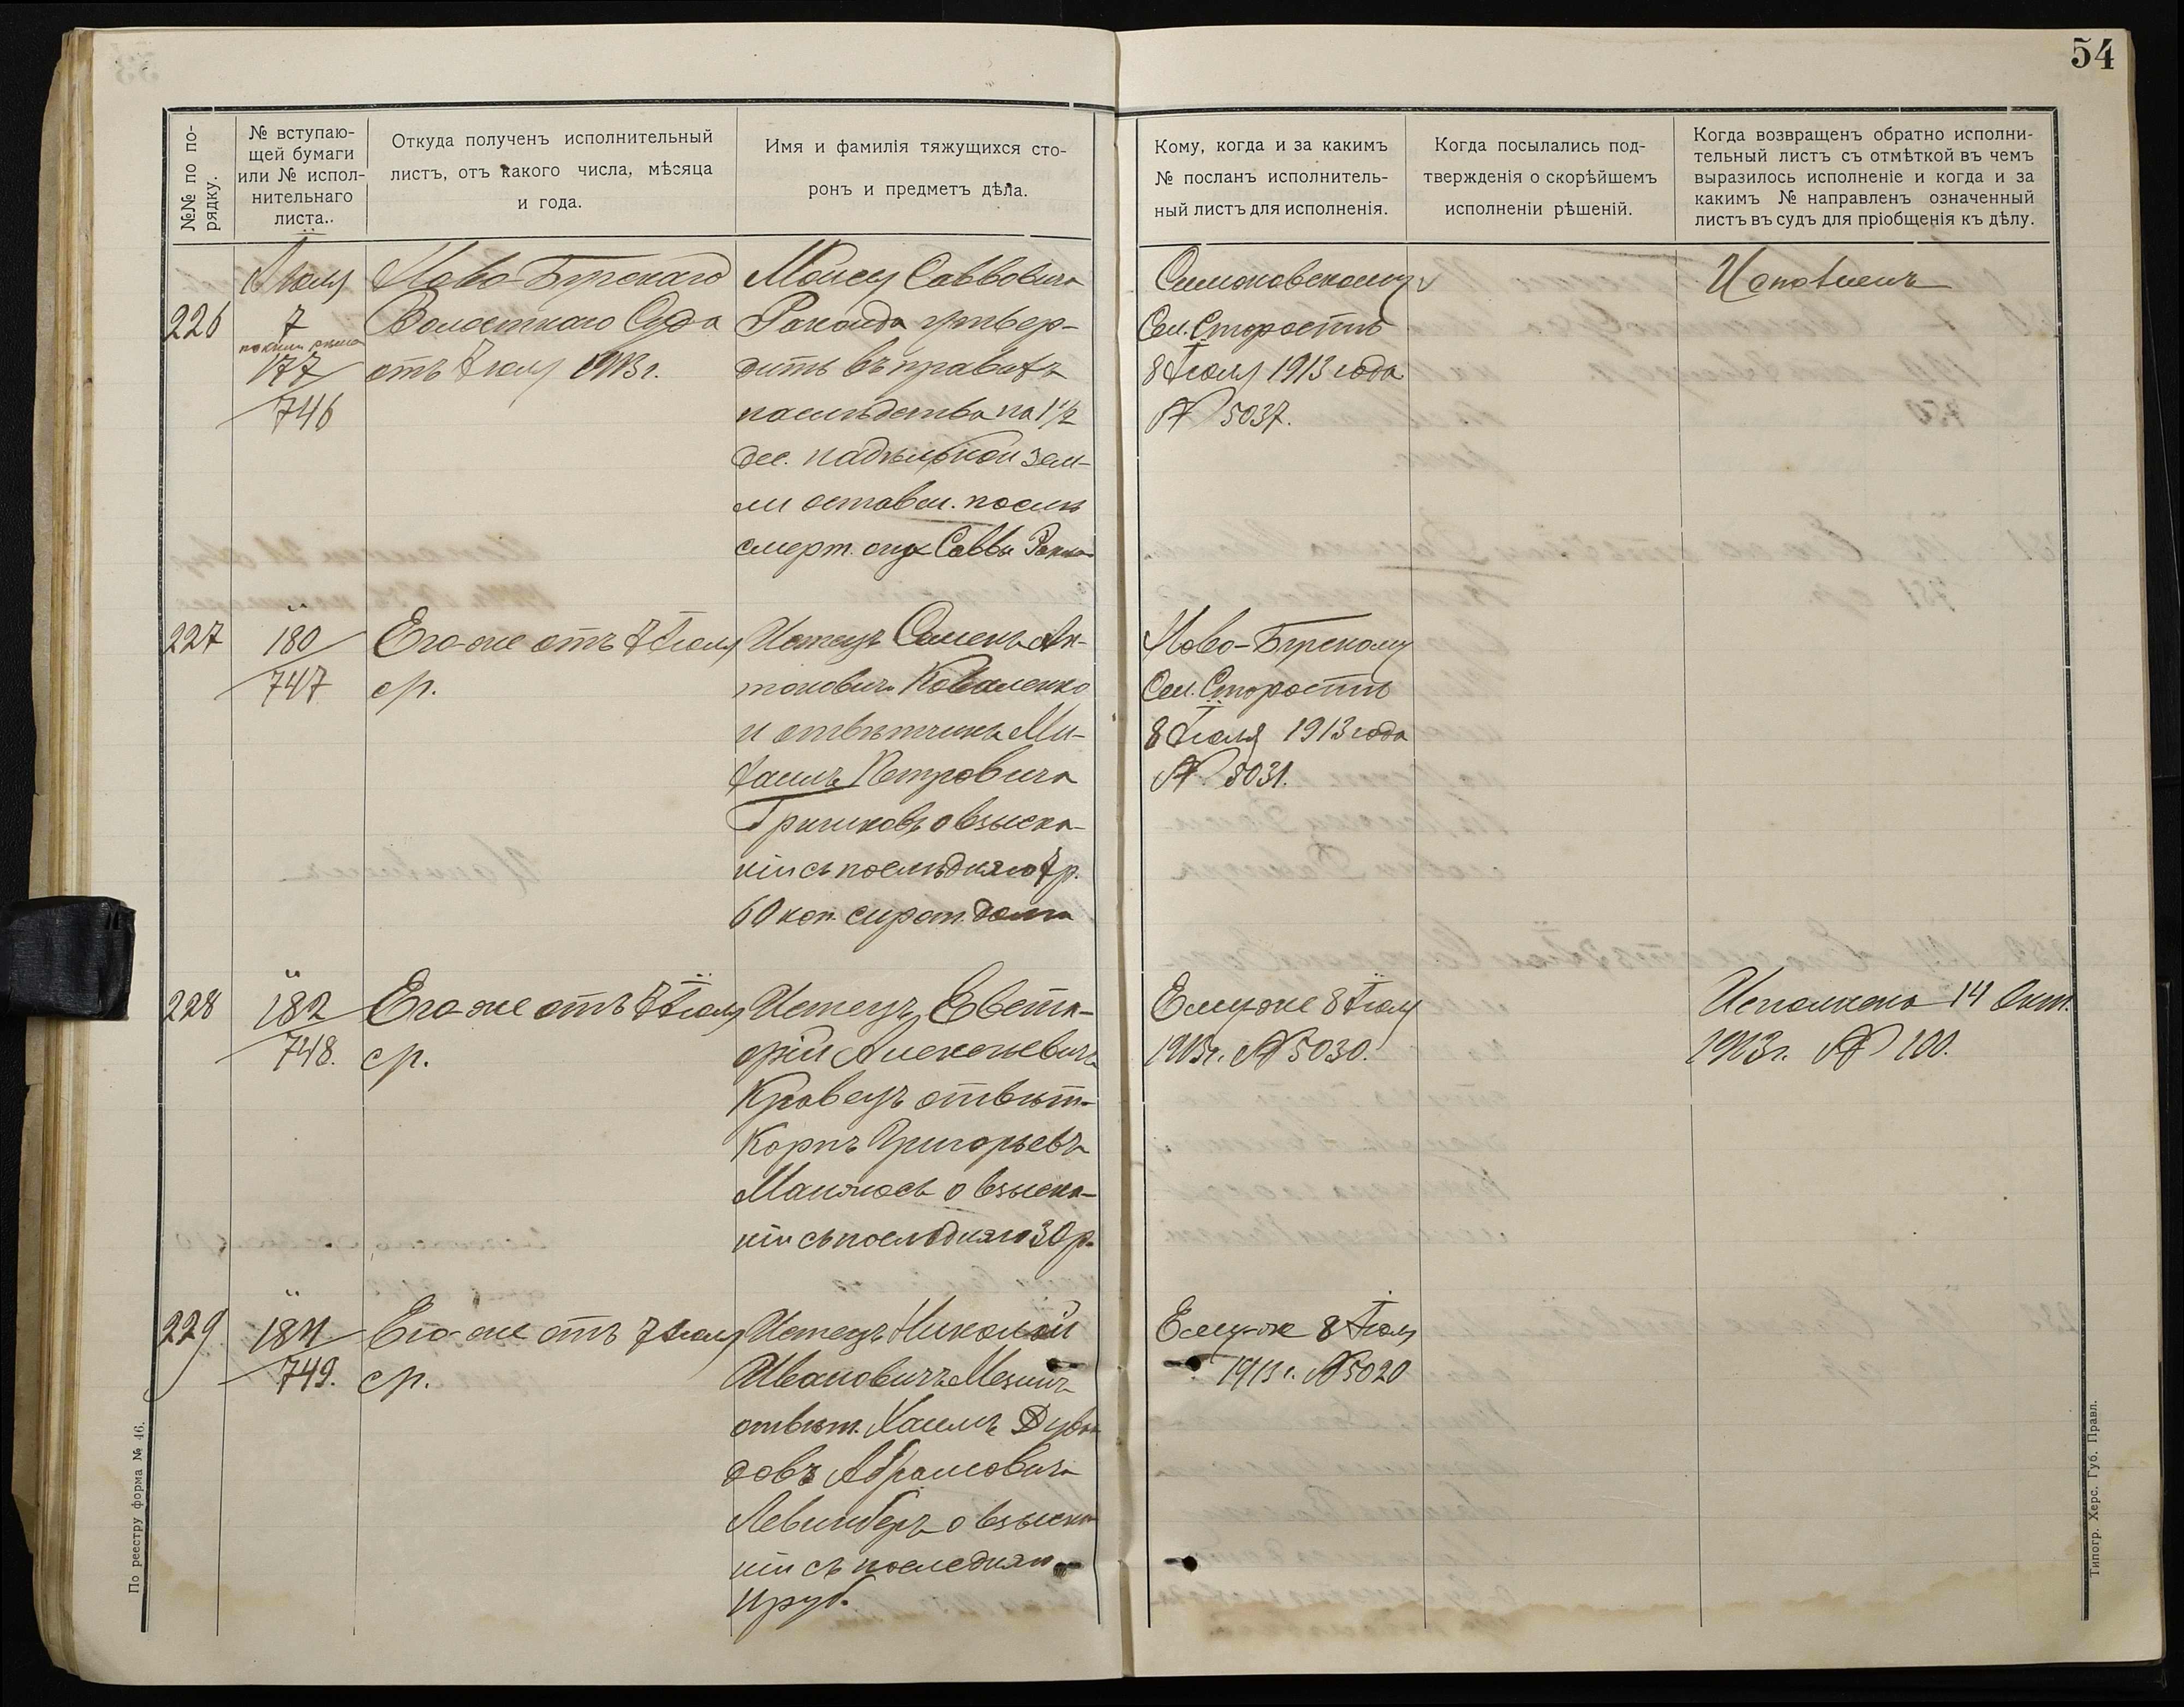 54
№№ по по-
рядку.
№ вступаю-
щей бумаги
или № испол-
нительнаго
листа.
Откуда полученъ исполнительный
листъ, отъ какого числа, мѣсяца
и года.
Имя и фамилія тяжущихся сто-
ронъ и предметъ дѣла.
Кому, когда и за какимъ
№ посланъ исполнитель-
ный листъ для исполненія.
Когда посылались под-
твержденія о скорѣйшемъ
исполненіи рѣшеній.
Когда возвращенъ обратно исполни-
тельный листъ съ отмѣткой въ чемъ
выразилось исполненіе и когда и за
какимъ № направленъ означенный
листъ въ судъ для пріобщенія къ дѣлу.
226
Іюля
7
по книг. рѣш.
177
746
Ново-Бугскаго
Волостного Суда
отъ 7 Іюля 1913 г.
Моисей Саввовичъ
утвер-
дить въ правахъ
наслѣдства на 1 1/2
дес. надѣльной зем-
ли оставш. послѣ
смерт. отца Саввы
Симоновскому
Сел. Старостѣ
8 Іюля 1913 года
№ 5037.
Исполненъ
227
180
747
Его-же отъ 7 Іюля
с/г.
Истецъ Семенъ Ан-
тоновичъ Коваленко
и отвѣтчикъ Ми-
хаилъ Петровичъ
о взыска-
ніи съ послѣдняго 7 р.
60 коп. сирот. долга
Ново-Бугскому
Сел. Старостѣ
8 Іюля 1913 года
№ 5031.
228
182
748.
Его-же отъ 7 Іюля
с/г.
Истецъ Евста-
фій Алексѣевичъ
Кравецъ отвѣт.
Карпъ Григорьевъ
о взыска-
ніи съ послѣдняго 30 р.
Ему-же 8 Іюля
1913 г. № 5030.
Исполнено 14 Окт.
1913 г. № 100.
229
184
749.
Его-же отъ 7 Іюля
с/г.
Истецъ Николай
Ивановичъ Мезинъ
отвѣт. Хаимъ Дуви-
довъ Абрамовичъ
о взыска-
ніи съ послѣдняго
руб.
Ему-же 8 Іюля
1913 г. № 5020
По реестру форма № 46.
Типогр. Херс. Губ. Правл.